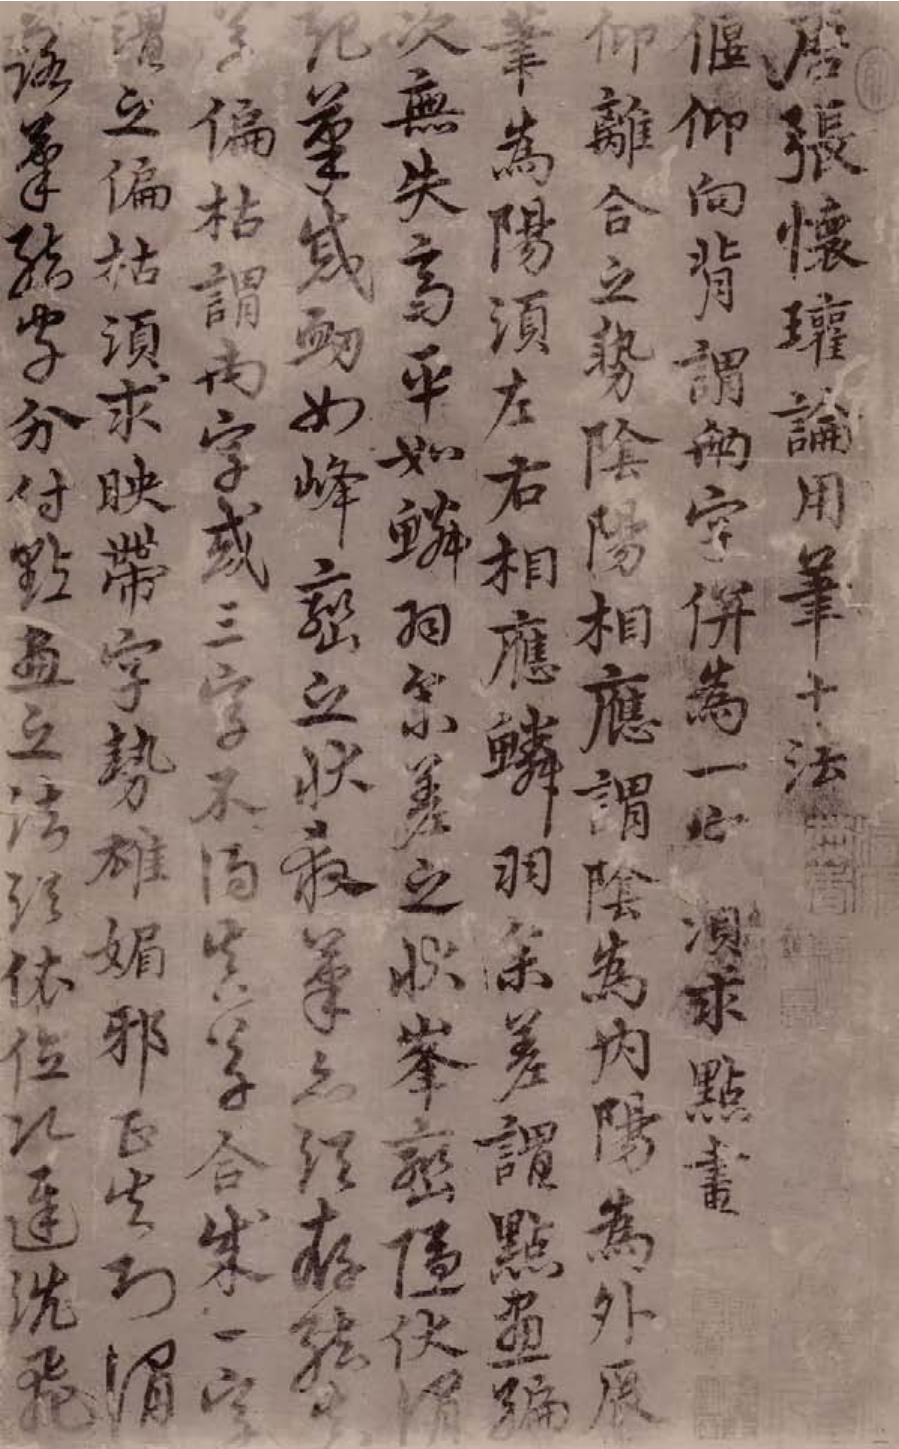 唐張懷瓘論用筆十法
偃仰向背謂兩字併為一字須求點畫
仰離合之勢陰陽相應謂陰為內陽為外展
筆為陽須左右相應鱗羽參差謂點畫編
次無失高平如鱗羽參差之狀峯巒隱伏謂
起筆或如峰巒之狀殺筆亦須存結
字偏枯謂兩字或三字不得真草合成一字
謂之偏枯須求映帶字勢雄媚邪正失則謂
落筆結字分付點畫之法須依位次遲洗飛